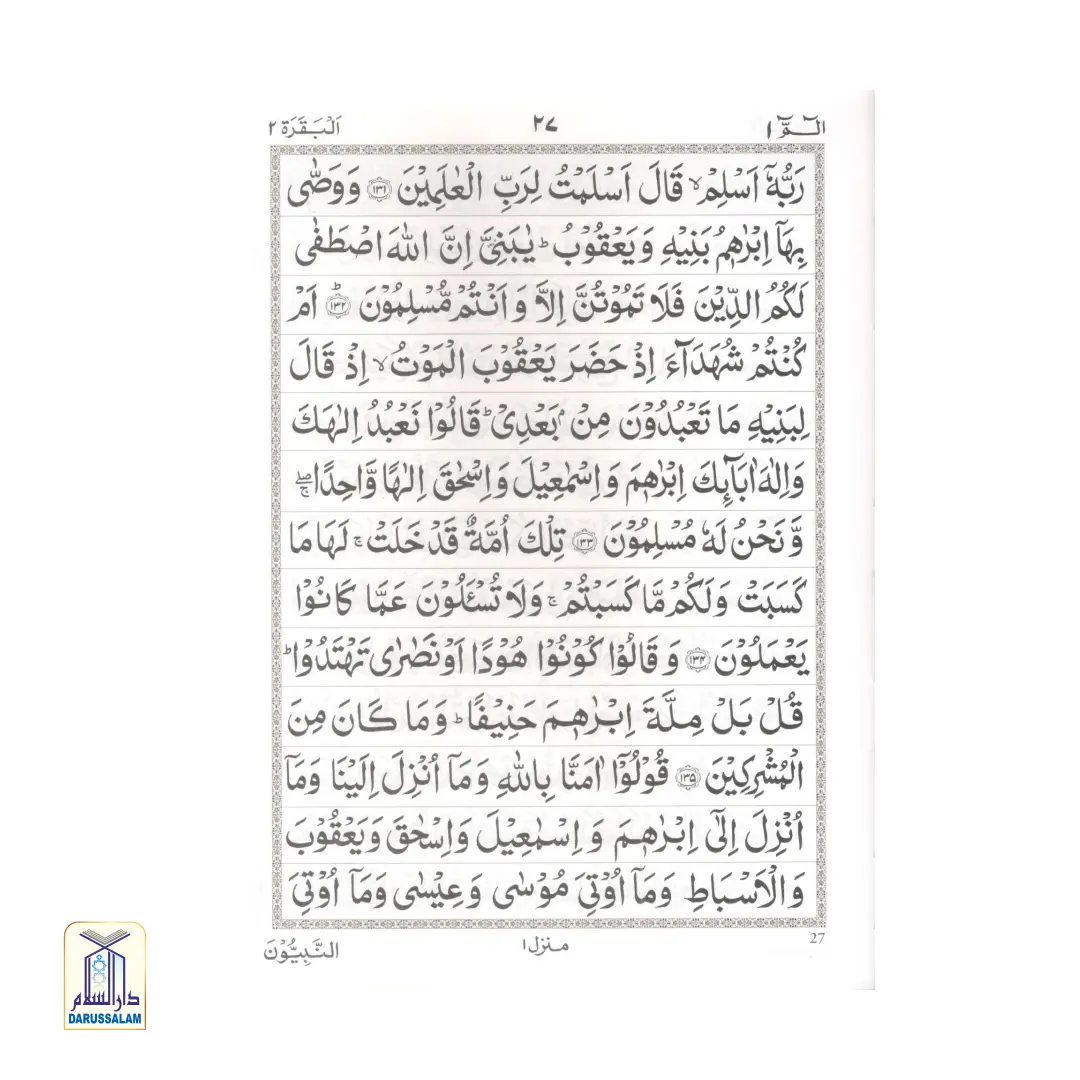 الٓمّٓ ١ ٢٧ اَلْبَقَرَة ٢
رَبُّهٗۤ اَسْلِمْ ۙ قَالَ اَسْلَمْتُ لِرَبِّ الْعٰلَمِيْنَ ﴿۱۳۱﴾ وَوَصّٰى
بِهَاۤ اِبْرٰهٖمُ بَنِيْهِ وَيَعْقُوْبُ ؕ يٰبَنِيَّ اِنَّ اللّٰهَ اصْطَفٰى
لَكُمُ الدِّيْنَ فَلَا تَمُوْتُنَّ اِلَّا وَاَنْتُمْ مُّسْلِمُوْنَ ﴿۱۳۲﴾ؕ اَمْ
كُنْتُمْ شُهَدَآءَ اِذْ حَضَرَ يَعْقُوْبَ الْمَوْتُ ۙ اِذْ قَالَ
لِبَنِيْهِ مَا تَعْبُدُوْنَ مِنْۢ بَعْدِيْ ؕ قَالُوْا نَعْبُدُ اِلٰهَكَ
وَاِلٰهَ اٰبَآئِكَ اِبْرٰهٖمَ وَاِسْمٰعِيْلَ وَاِسْحٰقَ اِلٰهًا وَّاحِدًا ۖۚ
وَّنَحْنُ لَهٗ مُسْلِمُوْنَ ﴿۱۳۳﴾ تِلْكَ اُمَّةٌ قَدْ خَلَتْ ۚ لَهَا مَا
كَسَبَتْ وَلَكُمْ مَّا كَسَبْتُمْ ۚ وَلَا تُسْـَٔلُوْنَ عَمَّا كَانُوْا
يَعْمَلُوْنَ ﴿۱۳۴﴾ وَقَالُوْا كُوْنُوْا هُوْدًا اَوْ نَصٰرٰى تَهْتَدُوْا ؕ
قُلْ بَلْ مِلَّةَ اِبْرٰهٖمَ حَنِيْفًا ؕ وَمَا كَانَ مِنَ
الْمُشْرِكِيْنَ ﴿۱۳۵﴾ قُوْلُوْۤا اٰمَنَّا بِاللّٰهِ وَمَاۤ اُنْزِلَ اِلَيْنَا وَمَاۤ
اُنْزِلَ اِلٰۤى اِبْرٰهٖمَ وَاِسْمٰعِيْلَ وَاِسْحٰقَ وَيَعْقُوْبَ
وَالْاَسْبَاطِ وَمَاۤ اُوْتِيَ مُوْسٰى وَعِيْسٰى وَمَاۤ اُوْتِيَ
27
منزل ١
النَّبِيُّوْنَ
دارالسلام
DARUSSALAM